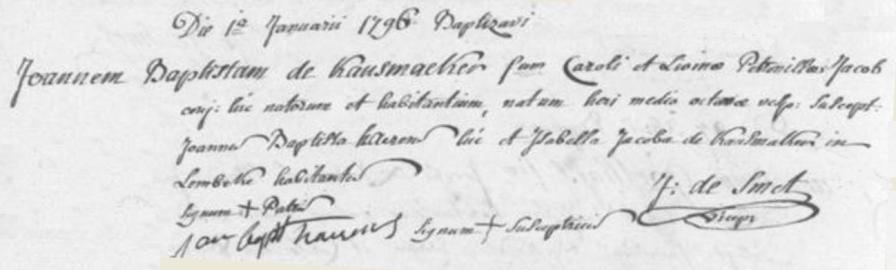 Die 1a Januarii 1796 Baptizavi
Joannem Baptistam de Kausmaeker fam Caroli et Livinæ Petronillæ Jacob
conj: hic natorum et habitantium, natum heri media octava vesp: suscept:
Joannes Baptista hic et Isabella Jacoba de Kausmaker in
Lembeke habitantes
signum + Patris J: de Smet
jan bapt signum + susceptricis